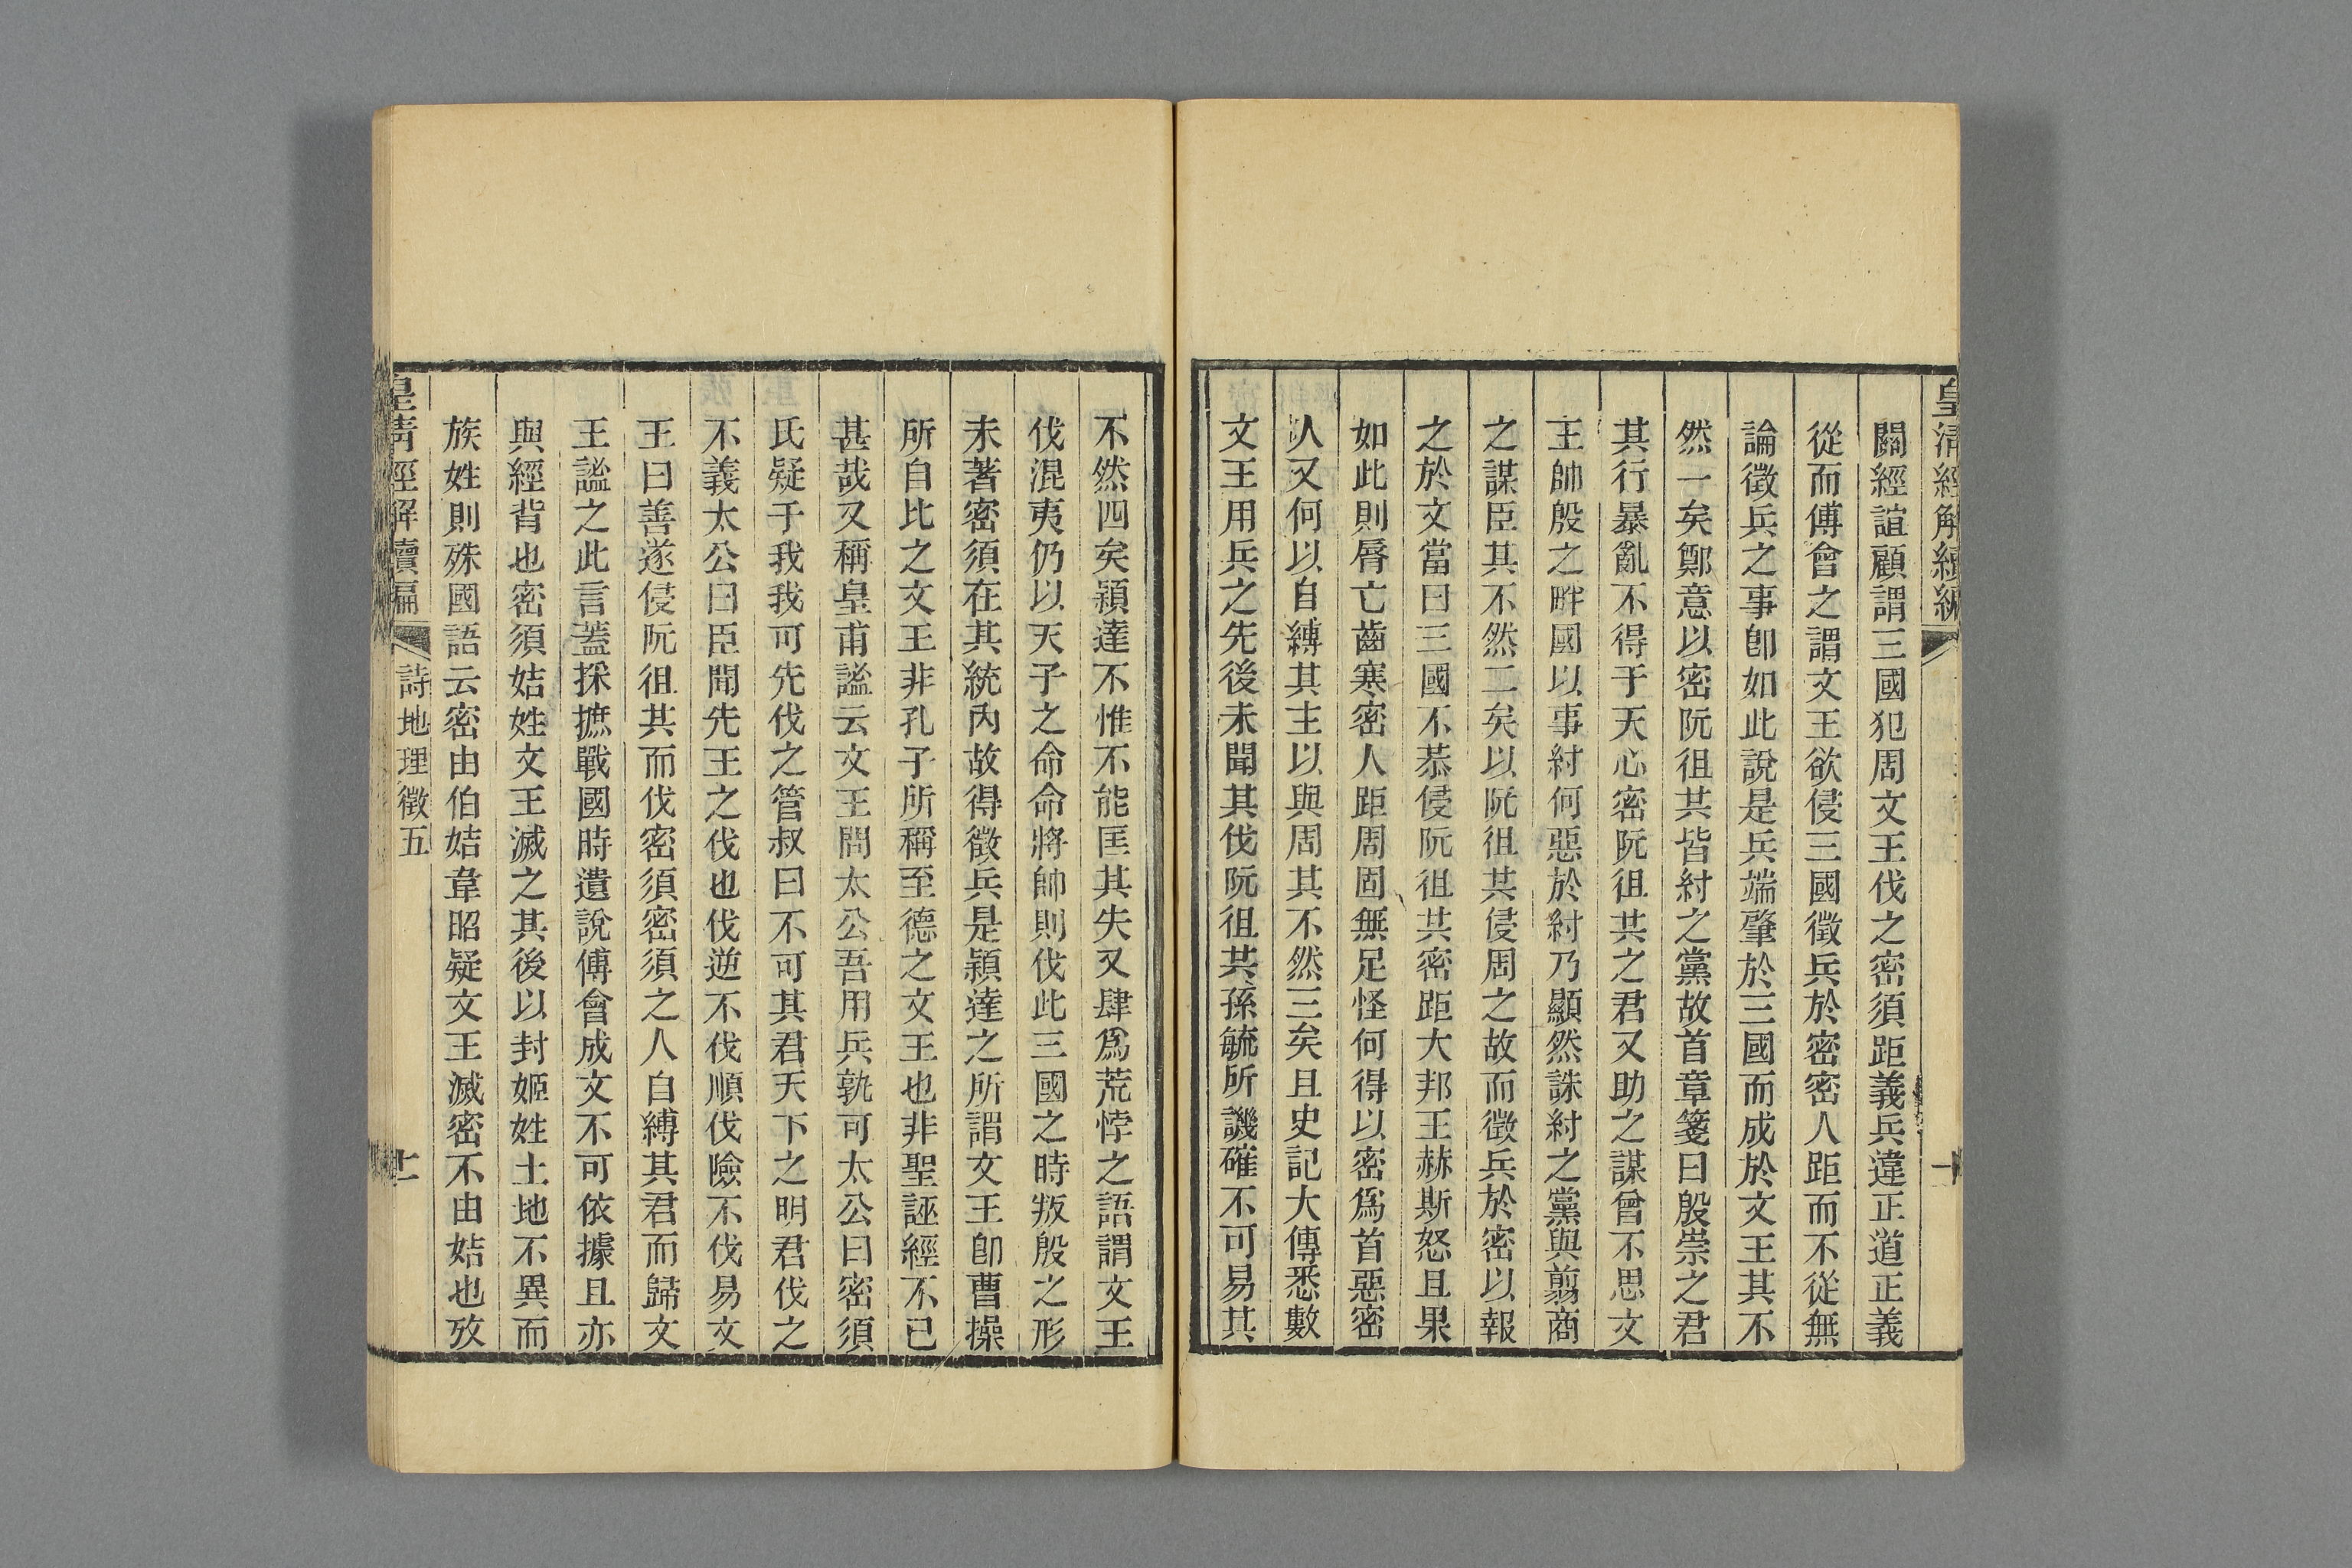 皇清經解續編
關經誼顧謂三國犯周文王伐之密須距義兵違正道正義
從而傅會之謂文王欲侵三國徵兵於密密人距而不從無
論徵兵之事卽如此說是兵端肇於三國而成於文王其不
然一矣鄭意以密阮徂共皆紂之黨故首章箋曰殷崇之君
其行暴亂不得于天心密阮徂共之君又助之謀曾不思文
王帥殷之畔國以事紂何惡於紂乃顯然誅紂之黨與翦商
之謀臣其不然二矣以阮徂共侵周之故而徵兵於密以報
之於文當曰三國不恭侵阮徂共密距大邦王赫斯怒且果
如此則脣亡齒寒密人距周固無足怪何得以密爲首惡密
人又何以自縛其主以與周其不然三矣且史記大傳悉數
文王用兵之先後未聞其伐阮徂共孫毓所譏確不可易其
不然四矣穎達不惟不能匡其失又肆爲荒悖之語謂文王
伐混夷仍以天子之命命將帥則伐此三國之時叛殷之形
未著密須在其統內故得徵兵是穎達之所謂文王卽曹操
所自比之文王非孔子所稱至德之文王也非聖誣經不已
甚哉又稱皇甫謐云文王問太公吾用兵孰可太公曰密須
氏疑于我我可先伐之管叔曰不可其君天下之明君伐之
不義太公曰臣聞先王之伐也伐逆不伐順伐險不伐易文
王曰善遂侵阮徂其而伐密須密須之人自縛其君而歸文
王謐之此言蓋採摭戰國時遺說傅會成文不可依據且亦
與經背也密須姞姓文王滅之其後以封姬姓土地不異而
族姓則殊國語云密由伯姞韋昭疑文王滅密不由姞也攷
皇清經解續編 詩地理徵五 十一